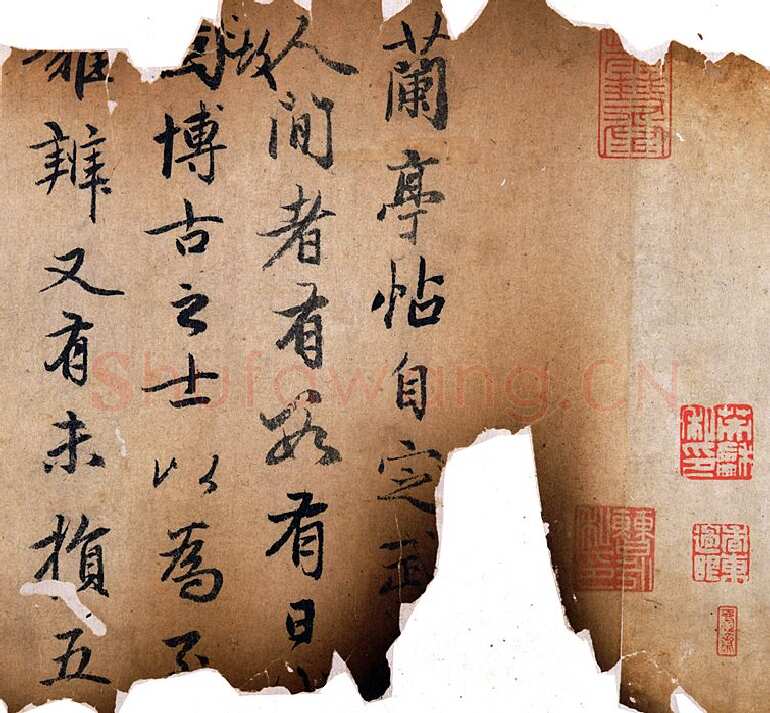 蘭亭帖自定武
人間者有數有日
故
博古之士以為
難辨又有未損五
Shufawang.CN